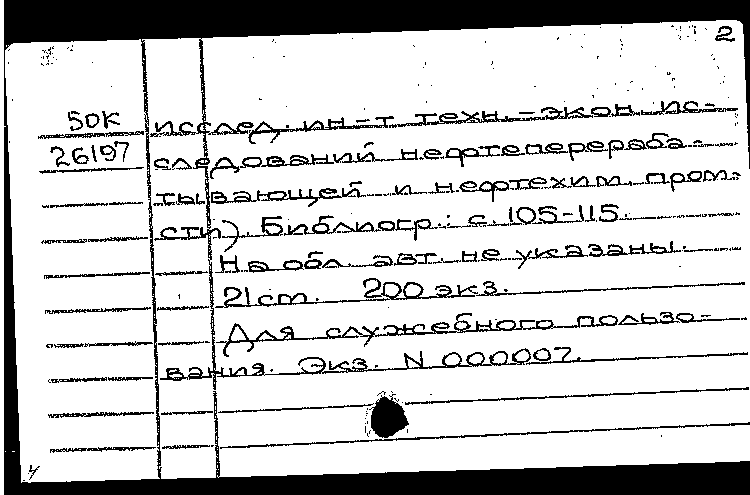 2
50К исслед. ин-т техн.-экон. ис-
26197 следований нефтеперераба-
тывающей и нефтехим. пром-
сти). Библиогр.: с. 105-115.
На обл. авт. не указаны.
21 см. 200 экз.
Для служебного пользо-
вания. Экз. N 000007.